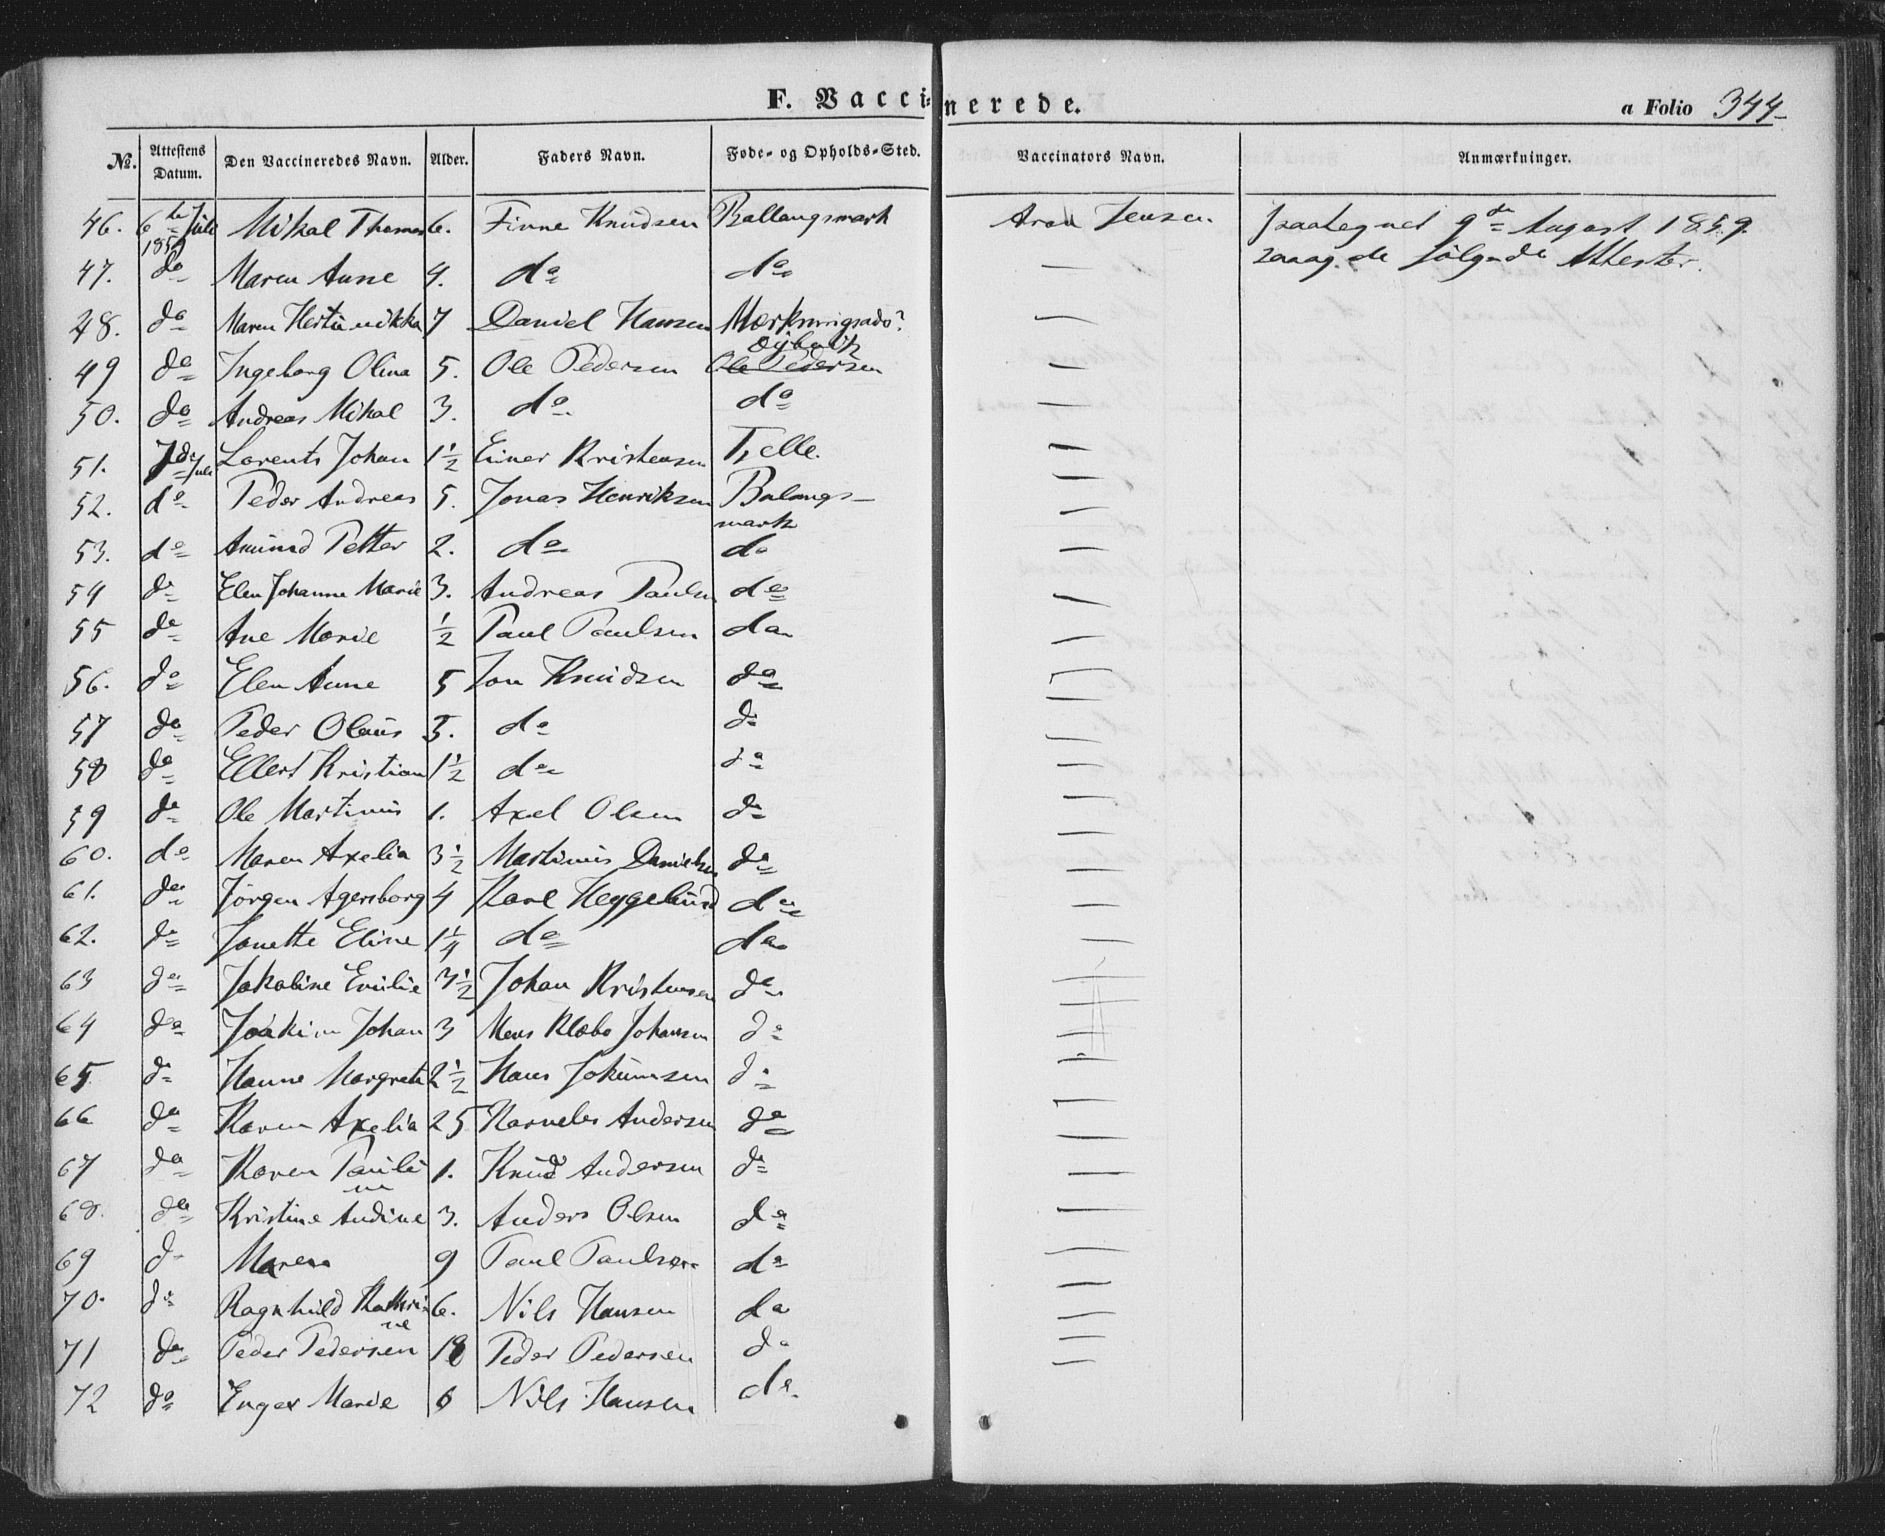 F. Vaccinerede.
a Folio 344
No. Attestens Datum. Den Vaccineredes Navn. Alder. Faders Navn. Føde- og Opholds-Sted. Vaccinators Navn. Anmærkninger.
46. 6te Juli 1859 Mikal Thomas 6. Finne Knudsen Ballangsmark Aron Jensen paategnet 9de August 1859.
47. do Maren Anne 4. do do — følgende Attester.
48. do Maren 7 Daniel Hansen —
49 do Ingeborg Olina 5. Ole Pedersen Ole Pedersen —
50. do Andreas Mikal 3. do do —
51. 7de Juli Lorents Johan 1½ Einer Kristensen —
52. do Peder Andreas 5. Jonas Henriksen Balangsmark —
53. do Amund Petter 2. do do —
54 do Elen Johanne Marie 3. Andreas Paulsen do —
55 do Ane Marie ½ Paul Paulsen do —
56. do Elen Anne 5 Jon Knudsen do —
57 do Peder Olaus 3. do do —
58 do Ellert Kristian 1½ do do —
59 do Ole Martinus 1. Axel Olsen do —
60. do Maren Axelia 3½ Martinus Danielsen do —
61. do Jørgen Agersborg 4 Karl Heggelund do —
62. do Janette Eline 1¼ do do —
63 do Jakobine Emilie 3½ Johan Kristensen do —
64 do Joakim Johan 3 Mens Klæbo Johansen do —
65 do Hanne Margrete 2½ Hans Jokumsen do —
66 do Karen Axelia 25 Karneles Andersen do —
67 do Karen Pauline 1. Knud Andersen do —
68. do Kristine Andine 3. Anders Olsen do —
69 do Maren 9 Paul Paulsen do —
70. do Ragnhild Kathrine 6. Nils Hansen do —
71 do Peder Pedersen 18 Peder Pedersen do —
72 do Inger Marie 6 Nils Hansen do —